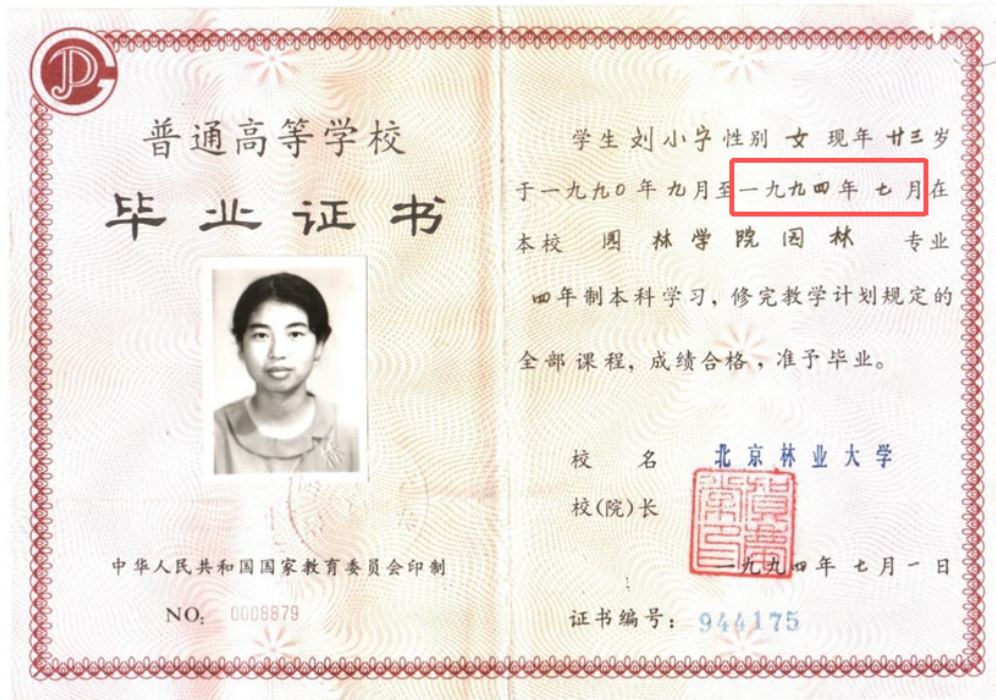 普通高等学校
毕业证书
中华人民共和国国家教育委员会印制
NO: 0008879
学生刘小宁性别 女 现年 廿三岁
于一九九〇年九月至一九九四年 七 月在
本校 园林学院园林 专业
四年制本科学习,修完教学计划规定的
全部课程,成绩合格,准予毕业。
校 名 北京林业大学
校(院)长
一九九四年 七月一日
证书编号: 944175